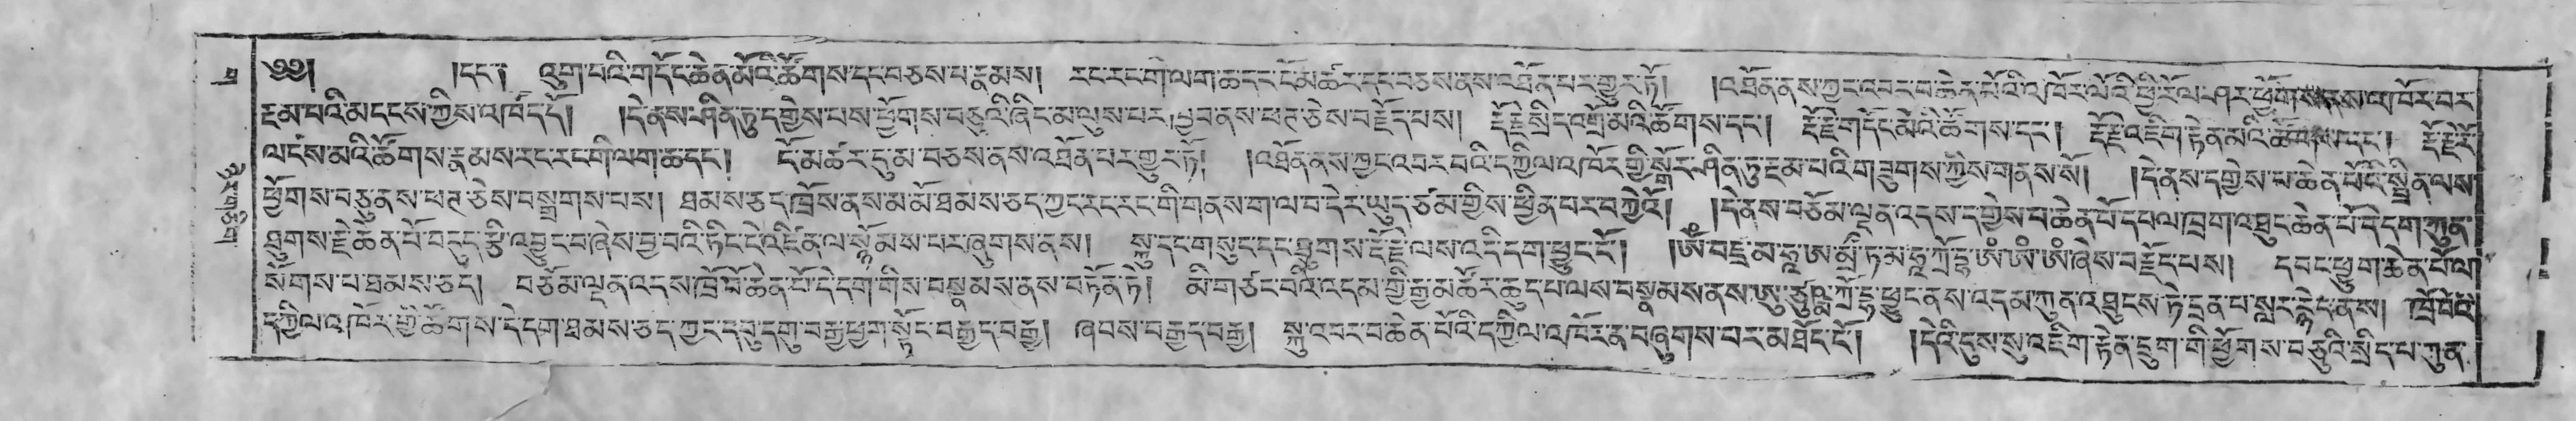 ༄༅། །དང་། འུག་པའི་གདོང་ཆེན་མོའི་ཚོགས་དང་བཅས་པ་རྣམས། རང་རང་གི་ལག་ཆ་དང་ངོ་མཚར་དང་བཅས་ནས་འཐོན་པར་གྱུར་ཏོ། །འཐོན་ནས་ཀྱང་འབར་བ་ཆེན་པོའི་འཁོར་ལོའི་ཕྱི་རོལ་ཤར་ཕྱོགས་ནས་འཁོར་བར་
རྔམ་པའི་མདངས་ཀྱིས་འཁོད་དོ། །དེ་ནས་ཤིན་ཏུ་དགྱེས་པས་ཕྱོགས་བཅུའི་ཞིང་མ་ལུས་པར་ཁྱབ་ནས་ཕཊ་ཅེས་བརྗོད་པས། རྡོ་རྗེ་སྲིད་འགྲོ་མའི་ཚོགས་དང་། རྡོ་རྗེ་གདོང་མོའི་ཚོགས་དང་། རྡོ་རྗེ་འཇིག་རྟེན་མའི་ཚོགས་དང་། རྡོ་རྗེ་རོ་
ལངས་མའི་ཚོགས་རྣམས་རང་རང་གི་ལག་ཆ་དང་། ངོ་མཚར་དུ་མ་བཅས་ནས་འཐོན་པར་གྱུར་ཏོ། །འཐོན་ནས་ཀྱང་འབར་བའི་དཀྱིལ་འཁོར་གྱི་སྒོར་ཤིན་ཏུ་རྔམ་པའི་གཟུགས་ཀྱིས་གནས་སོ། །དེ་ནས་དགྱེས་པ་ཆེན་པོའི་སྤྲིན་ལས་
ཕྱོགས་བཅུ་ནས་ཕཊ་ཅེས་བསྒྲགས་པས། ཐམས་ཅད་ཁྲོས་ནས་མ་མོ་ཐམས་ཅད་ཀྱང་རང་རང་གི་གནས་ག་ལ་བ་དེར་ཡུད་ཙམ་གྱིས་ཕྱིན་པར་བཀྱེའོ། །དེ་ནས་བཅོམ་ལྡན་འདས་དགྱེས་པ་ཆེན་པོ་དཔལ་ཁྲག་འཐུང་ཆེན་པོ་དེ་དག་ཀུན་
ཐུགས་རྗེ་ཆེན་པོ་བདུད་རྩི་འབྱུང་བ་ཞེས་བྱ་བའི་ཏིང་ངེ་འཛིན་ལ་སྙོམས་པར་ཞུགས་ནས། སྐུ་དང་གསུང་དང་ཐུགས་རྡོ་རྗེ་ལས་འདི་དག་ཕྱུང་ངོ༌། །ཨོཾ་བཛྲ་མ་ཧཱ་ཨ་མྲྀ་ཏ་མ་ཧཱ་ཀྲོ་དྷ་ཨཾ་ཨཾ་ཨཾ་ཞེས་བརྗོད་པས། དབང་ཕྱུག་ཆེན་པོ་ལ་
སོགས་པ་ཐམས་ཅད། བཅོམ་ལྡན་འདས་ཁྲོ་བོ་ཆེན་པོ་དེ་དག་གིས་བསྣམས་ནས་བཏོན་ཏེ། མི་གཙང་བའི་འདམ་གྱི་རྒྱ་མཚོར་ཆུད་པ་ལས་བསྣམས་ནས་ཨུ་ཙུཥྨ་ཀྲོ་དྷ་ཕྱུང་ནས་འདམ་ཀུན་འཐུངས་ཏེ་དྲན་པ་སླར་རྙེད་ནས། ཁྲོ་བོའི་
དཀྱིལ་འཁོར་གྱི་ཚོགས་དེ་དག་ཐམས་ཅད་ཀྱང་དབུ་དགུ་བརྒྱ་ཕྱག་སྟོང་བརྒྱད་བརྒྱ། ཞབས་བརྒྱད་བརྒྱ། སྐུ་འབར་བ་ཆེན་པོའི་དཀྱིལ་འཁོར་ན་བཞུགས་པར་མཐོང་ངོ༌། །དེའི་དུས་སུ་འཇིག་རྟེན་དྲུག་གི་ཕྱོགས་བཅུའི་སྲིད་པ་ཀུན་